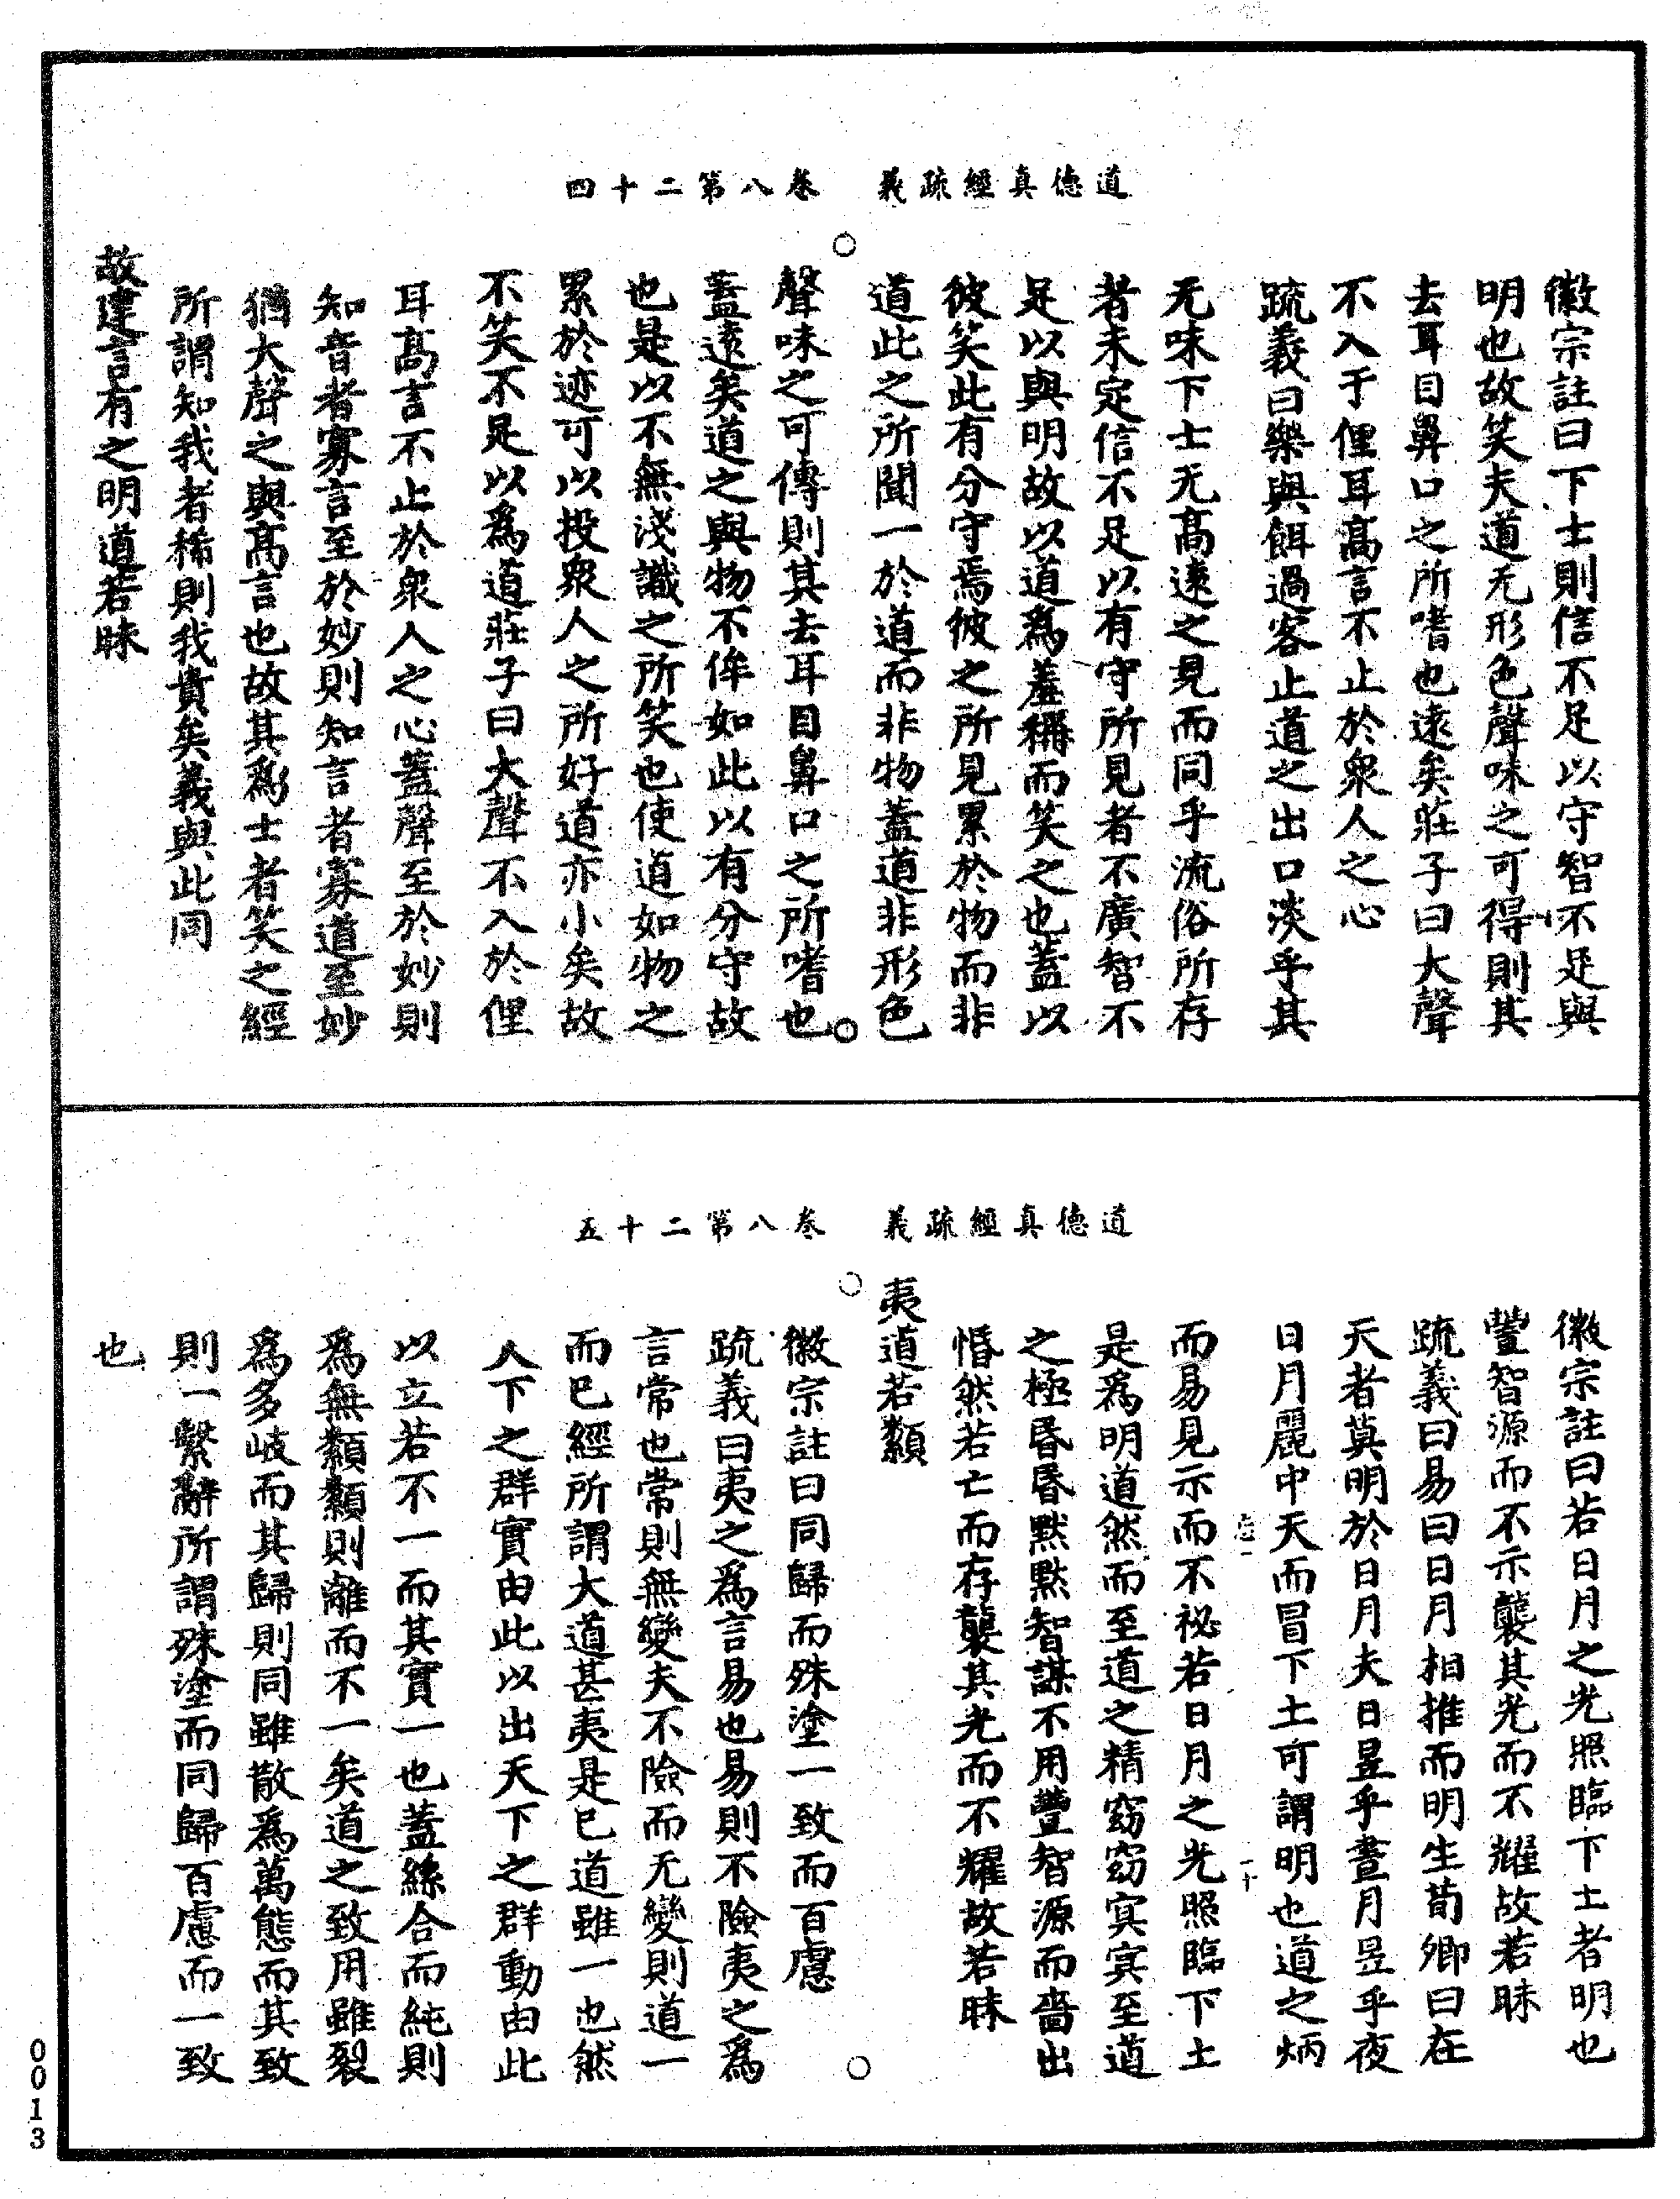 道德真經疏義　卷八第二十四
徽宗註曰下士則信不足以守智不足與
明也故笑夫道无形色聲味之可得則其
去耳目鼻口之所嗜也遠矣莊子曰大聲
不入于俚耳高言不止於衆人之心
疏義曰樂與餌過客止道之出口淡乎其
无味下士无高遠之見而同乎流俗所存
者未定信不足以有守所見者不廣智不
足以與明故以道爲羞稱而笑之也蓋以
彼笑此有分守焉彼之所見累於物而非
道此之所聞一於道而非物蓋道非形色
聲味之可傳則其去耳目鼻口之所嗜也
蓋遠矣道之與物不侔如此以有分守故
也是以不無淺識之所笑也使道如物之
累於迹可以投衆人之所好道亦小矣故
不笑不足以爲道莊子曰大聲不入於俚
耳高言不止於衆人之心蓋聲至於妙則
知音者寡言至於妙則知言者寡道至妙
猶大聲之與高言也故其爲士者笑之經
所謂知我者稀則我貴矣義與此同
故建言有之明道若昧
道德真經疏義　卷八第二十五
徽宗註曰若日月之光照臨下土者明也
豐智源而不示襲其光而不耀故若昧
疏義曰易曰日月相推而明生荀卿曰在
天者莫明於日月夫日昱乎晝月昱乎夜
日月麗中天而冒下土可謂明也道之炳
而易見示而不祕若日月之光照臨下土
是爲明道然而至道之精窈窈冥冥至道
之極昏昏默默智謀不用豐智源而嗇出
惛然若亡而存襲其光而不耀故若昧
夷道若纇
徽宗註曰同歸而殊塗一致而百慮
疏義曰夷之爲言易也易則不險夷之爲
言常也常則無變夫不險而无變則道一
而已經所謂大道甚夷是已道雖一也然
天下之群實由此以出天下之群動由此
以立若不一而其實一也蓋絲合而純則
爲無纇纇則離而不一矣道之致用雖裂
爲多岐而其歸則同雖散爲萬態而其致
則一繫辭所謂殊塗而同歸百慮而一致
也
0013